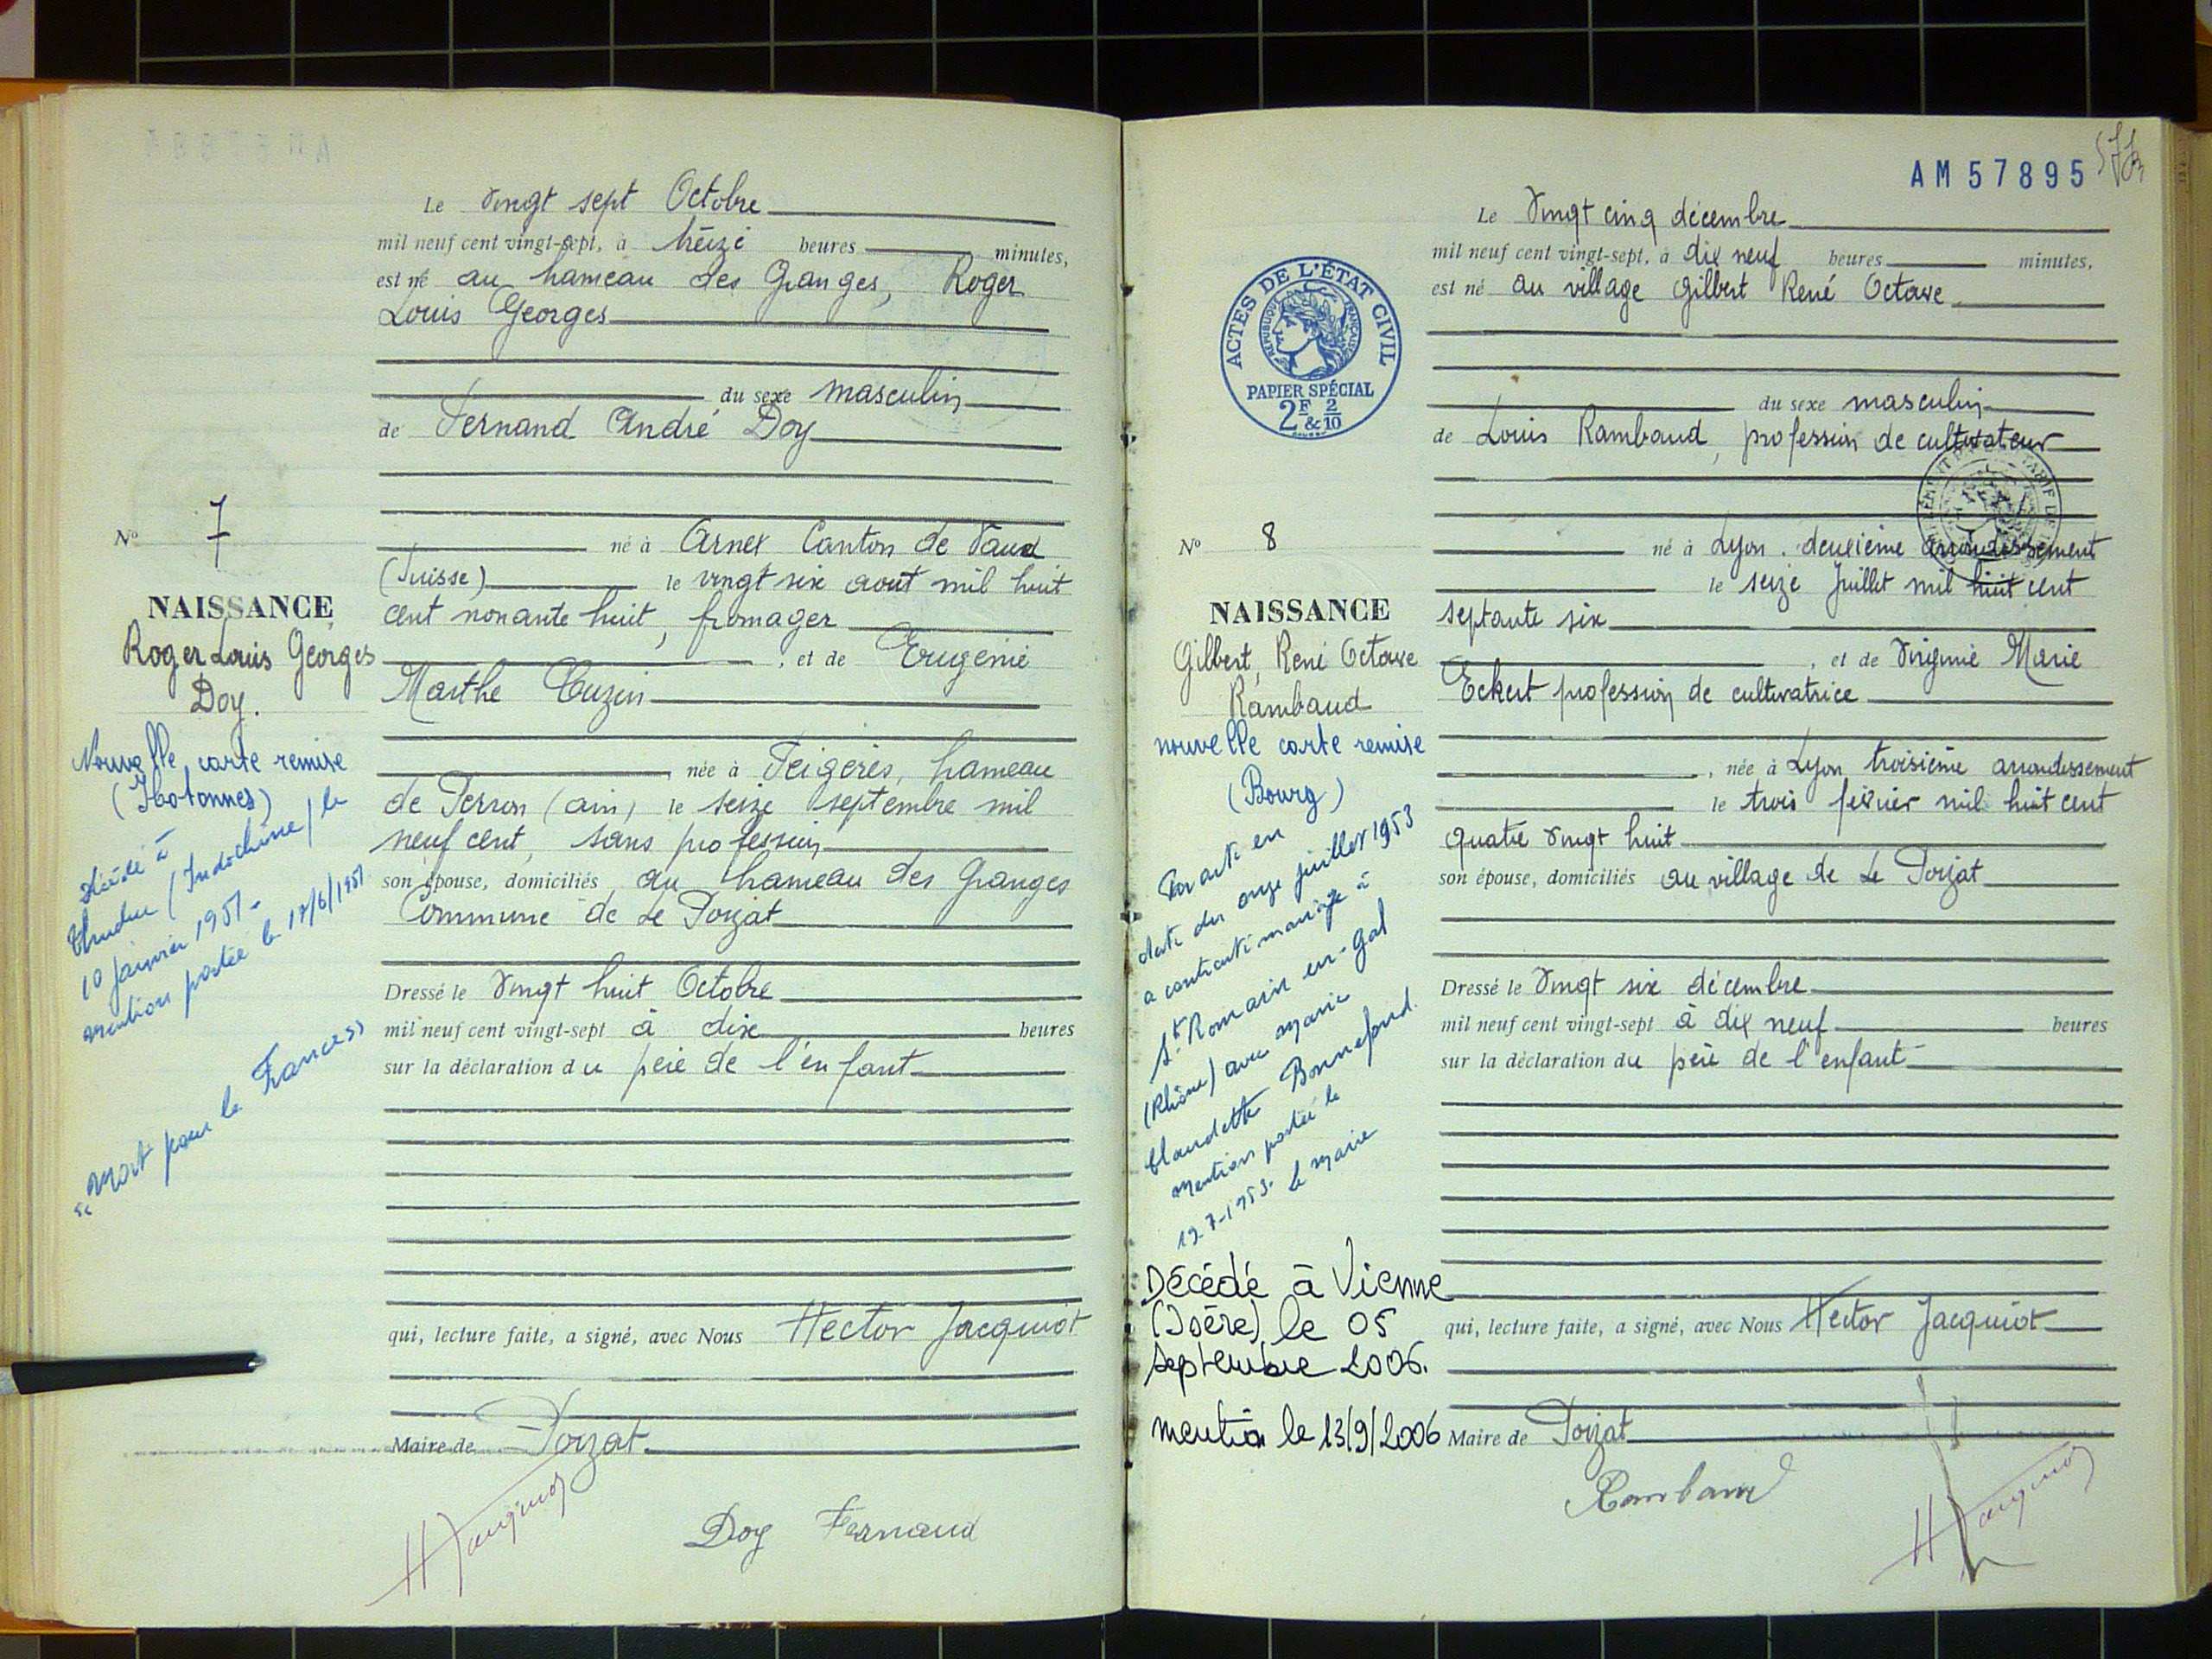 Le vingt sept Octobre
mil neuf cent vingt-sept, à treize heures minutes,
est né au hameau des Granges, Roger
Louis Georges
du sexe masculin
de Fernand André Doy
né à Arnex Canton de Vaud
(Suisse) le vingt six aout mil huit
cent nonante huit, fromager
, et de Eugénie
Marthe Cuzin
, née à Feigères, hameau
de Perron (ain) le seize septembre mil
neuf cent, sans profession
son épouse, domiciliés au hameau des Granges
Commune de Le Poizat
Dressé le vingt huit Octobre
mil neuf cent vingt-sept à dix heures
sur la déclaration du père de l'enfant
qui, lecture faite, a signé, avec Nous Hector Jacquiot
Maire de Poizat
H Jacquiot
Doy Fernand
No 7
NAISSANCE
Roger Louis Georges
Doy.
Nouvelle carte remise
(Hotonnes)
Décédé à
(Indochine) le
10 janvier 1951 -
mention portée le 18/6/1951
"Mort pour la France"
AM 57895
Le vingt cinq décembre
mil neuf cent vingt-sept, à dix neuf heures minutes,
est né au village Gilbert René Octave
du sexe masculin
de Louis Rambaud, profession de cultivateur
né à Lyon. deuxième arrondissement
le seize Juillet mil huit cent
septante six
, et de Virginie Marie
Eckert profession de cultivatrice
, née à Lyon troisième arrondissement
le trois février mil huit cent
quatre vingt huit
son épouse, domiciliés au village de Le Poizat
Dressé le vingt six décembre
mil neuf cent vingt-sept à dix neuf heures
sur la déclaration du père de l'enfant
qui, lecture faite, a signé, avec Nous Hector Jacquiot
Maire de Poizat
Rambaud
H Jacquiot
ACTES DE L'ÉTAT CIVIL
RÉPUBLIQUE FRANÇAISE
PAPIER SPÉCIAL
2F & 2/10
No 8
NAISSANCE
Gilbert, René Octave
Rambaud
nouvelle carte remise
(Bourg)
Par acte en
date du onze juillet 1953
a contracté mariage à
St Romain en-Gal
(Rhône) avec Marie
Claudette Bonnefond.
mention portée le
19-7-1953. Le Maire
Décédé à Vienne
(Isère) le 05
septembre 2006.
mention le 13/9/2006